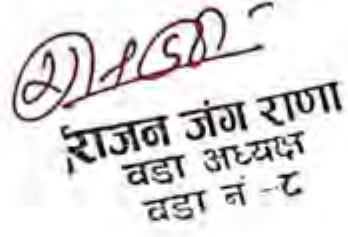 राजन जंग राणा
वडा अध्यक्ष
वडा नं -८